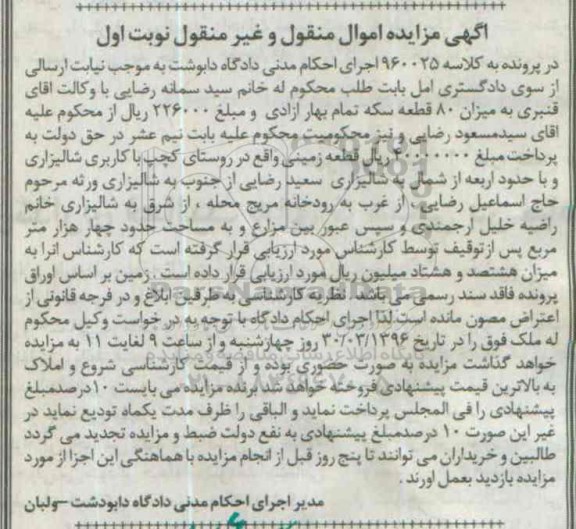 آگهی مزایده اموال منقول و غیر منقول نوبت اول
در پرونده به کلاسه ۹۶۰۰۲۵ اجرای احکام مدنی دادگاه دابوشت به موجب نیابت ارسالی
از سوی دادگستری امل بابت طلب محکوم له خانم سید سمانه رضایی با وکالت اقای
قنبری به میزان ۸۰ قطعه سکه تمام بهار ازادی و مبلغ ۲۲۶۰۰۰ ریال از محکوم علیه
اقای سیدمسعود رضایی و نیز محکومیت محکوم علیه بابت نیم عشر در حق دولت به
پرداخت مبلغ ریال قطعه زمینی واقع در روستای کچپ با کاربری شالیزاری
و با حدود اربعه از شمال به شالیزاری سعید رضایی از جنوب به شالیزاری ورثه مرحوم
حاج اسماعیل رضایی ، از غرب به رودخانه مریج محله ، از شرق به شالیزاری خانم
راضیه خلیل ارجمندی و سپس عبور بین مزارع و به مساحت حدود چهار هزار متر
مربع پس ازتوقیف توسط کارشناس مورد ارزیابی قرار گرفته است که کارشناس انرا به
میزان هشتصد و هشتاد میلیون ریال مورد ارزیابی قرار داده است . زمین بر اساس اوراق
پرونده فاقد سند رسمی می باشد . نظریه کارشناسی به طرفین ابلاغ و در فرجه قانونی از
اعتراض مصون مانده است لذا اجرای احکام دادگاه با توجه به در خواست وکیل محکوم
له ملک فوق را در تاریخ ۳۰/۰۳/۱۳۹۶ روز چهارشنبه و از ساعت ۹ لغایت ۱۱ به مزایده
خواهد گذاشت مزایده به صورت حضوری بوده و از قیمت کارشناسی شروع و املاک
به بالاترین قیمت پیشنهادی فروخته خواهد شد برنده مزایده می بایست ۱۰درصدمبلغ
پیشنهادی را فی المجلس پرداخت نماید و الباقی را ظرف مدت یکماه تودیع نماید در
غیر این صورت ۱۰ درصدمبلغ پیشنهادی به نفع دولت ضبط و مزایده تجدید می گردد
طالبین و خریداران می توانند تا پنج روز قبل از انجام مزایده با هماهنگی این اجرا از مورد
مزایده بازدید بعمل اورند .
مدیر اجرای احکام مدنی دادگاه دابودشت – ولبان